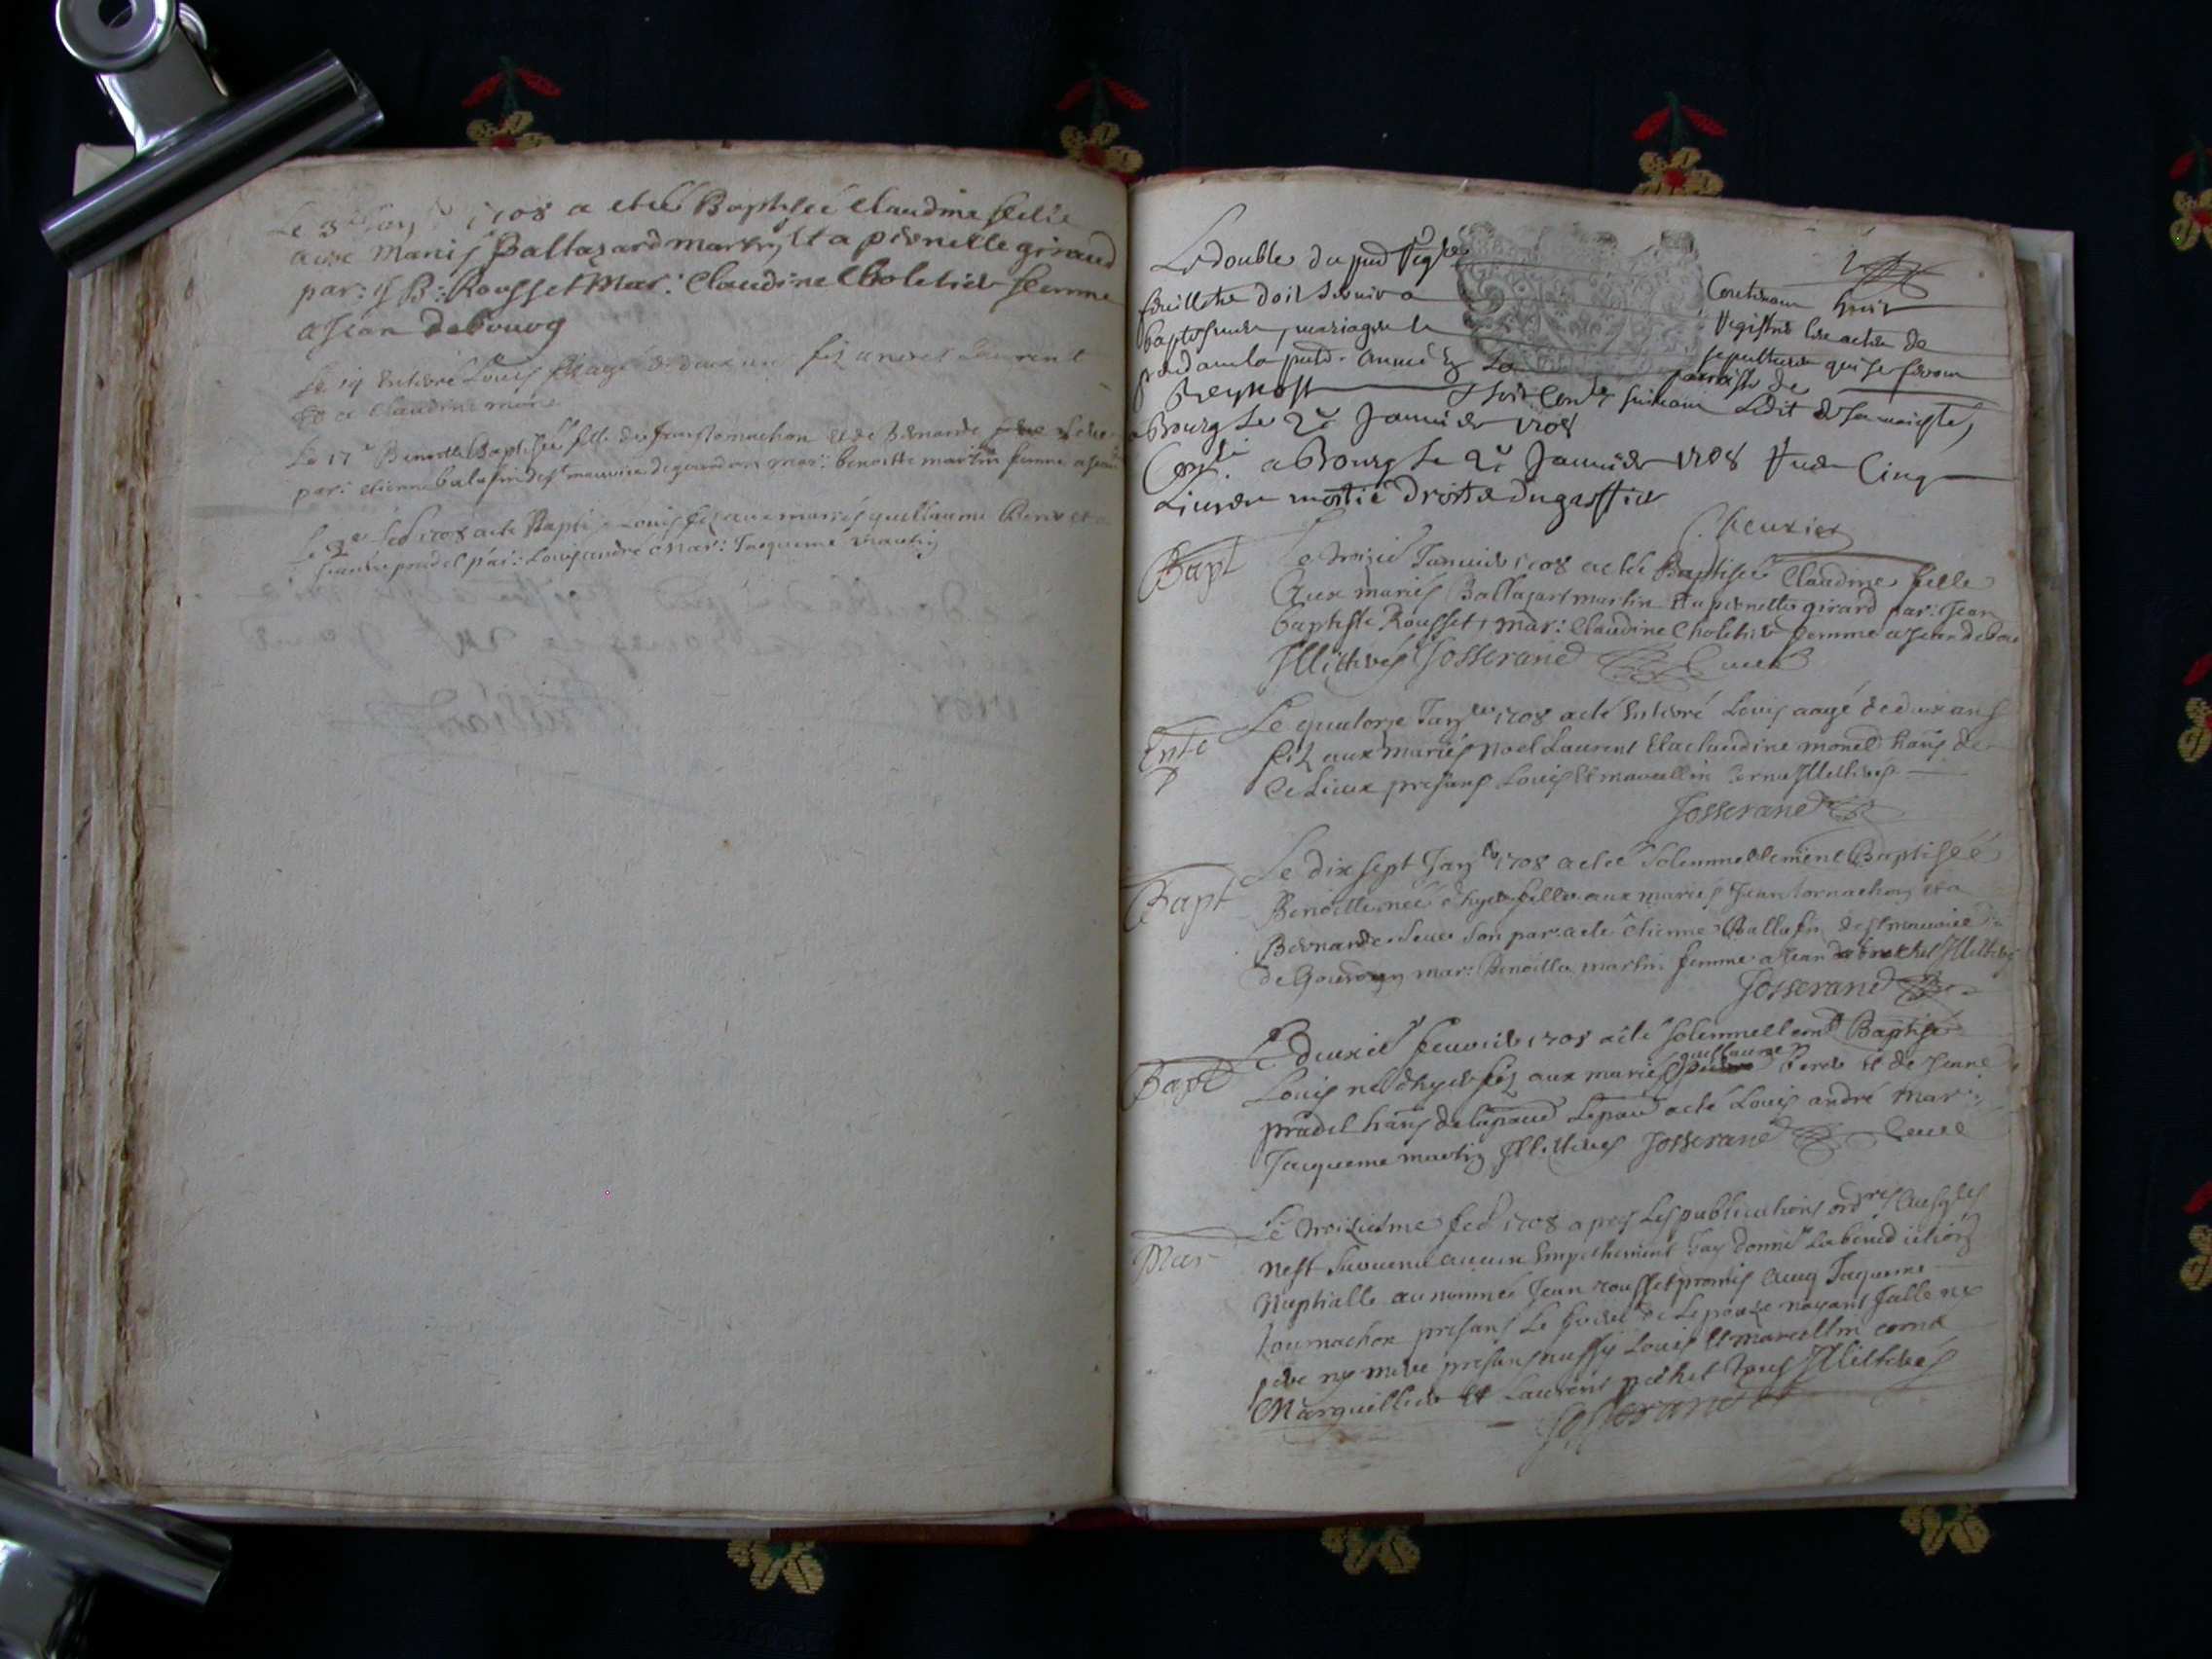 Le 3e Janr 1708 a eteé Baptiseé Claudine fellie
aux Mariés Baltazard martin, et a pernette giraud
par: J B: Rousset Mar: Claudine Choletier femme
a Jean debourg
Le 14 enterré Louis agé de deux ans fiz a noel Laurent
et a Claudine mone
Le 17e Benoitte Baptiseé fille de Jean tornachon et de Bernarde
par: etienne balafin de st maurice de gourdan mar: benoitte martin femme a Jean
Le 2e feb 1708 a eté Baptisé Louis fiz aux mariés guillaume
pradel par: Louis andré Mar: Jaqueme martin
Le double du pnt Registre Contenant huit
feuillets doit servir a Registrer les actes de
baptesmes, mariages et sepultures qui se feront
pendant la pnte année en la parroisse de
Beynost suivant Ledit de sa majesté,
a Bourg Le 2e Janvier 1708
a Bourg Le 2e Janvier 1708 Cinq
Livres moitié droits du greffier
Bapt Le troizie Janvier 1708 a eté Baptiseé Claudine fille
Aux mariés Baltazart martin et a pernette girard par: Jean
baptiste Rousset, mar: Claudine Choletier femme a Jean debou
Illitterés Josserand Curé
Ente Le quatorze Janer 1708 a eté Enterré Louis aagé de deux ans
fiz aux mariés noel Laurent et a claudine monet hans de
Ce Lieux presans Louis et marcellin Cornu Illitterés
Josserand
Bapt Le dix sept Janer 1708 a eteé Solemnellement Baptiseé
Benoitte neé dhyer fille aux mariés Jean tornachon et a
Bernarde son par: a eté etienne Ballafin de st maurice
de Gourdan mar: Benoitte martin femme a Jean Illitterés
Josserand
Bapt Le deuxie feuvrier 1708 a eté solemnellemt Baptisé
Louis né dhyer fiz aux mariés guillaume et de Jenne
pradel hans de lapape Le par: a eté Louis andré Mar:
Jaqueme martin Illitterés Josserand Curé
Mar Le troiziesme feb 1708 apres Les publications ordres Ausqles
nest survenu aucun Empechement Jay donné La benediction
Nuptialle au nommé Jean rousset promis Avec Jaqueme
tournachon presans Le de Lepouze nayant Jalle ny
pere ny mere presans aussy Louis et marcellin cornu
Marguillier et Laurent pochet tous Illitterés
Josserand